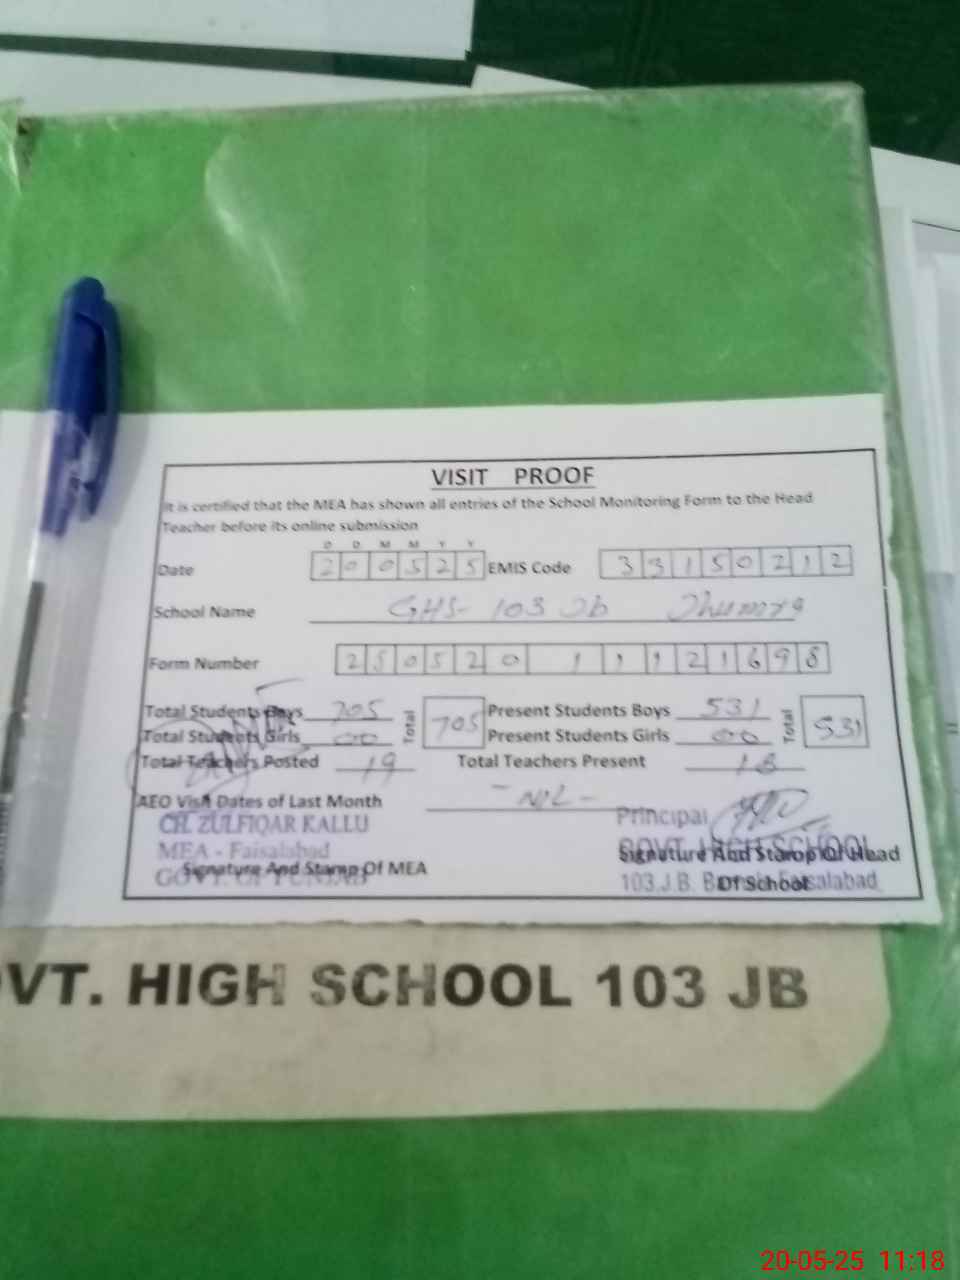 VISIT PROOF
It is certified that the MEA has shown all entries of the School Monitoring Form to the Head
Teacher before its online submission
D D M M Y Y
Date 200525 EMIS Code 33150212
School Name GHS- 103 Jb Jhumra
Form Number 25052011121698
Total Students Boys 705 Total 705 Present Students Boys 531 Total 531
Total Students Girls 00 Present Students Girls 00
Total Teachers Posted 19 Total Teachers Present 18
AEO Visit Dates of Last Month - NIL -
CH. ZULFIQAR KALLU
MEA - Faisalabad
GOVT. OF PUNJAB
Signature And Stamp Of MEA
Principal
GOVT. HIGH SCHOOL
Signature And Stamp Of Head
Of School
103.J.B. Faisalabad
OVT. HIGH SCHOOL 103 JB
20-05-25 11:18